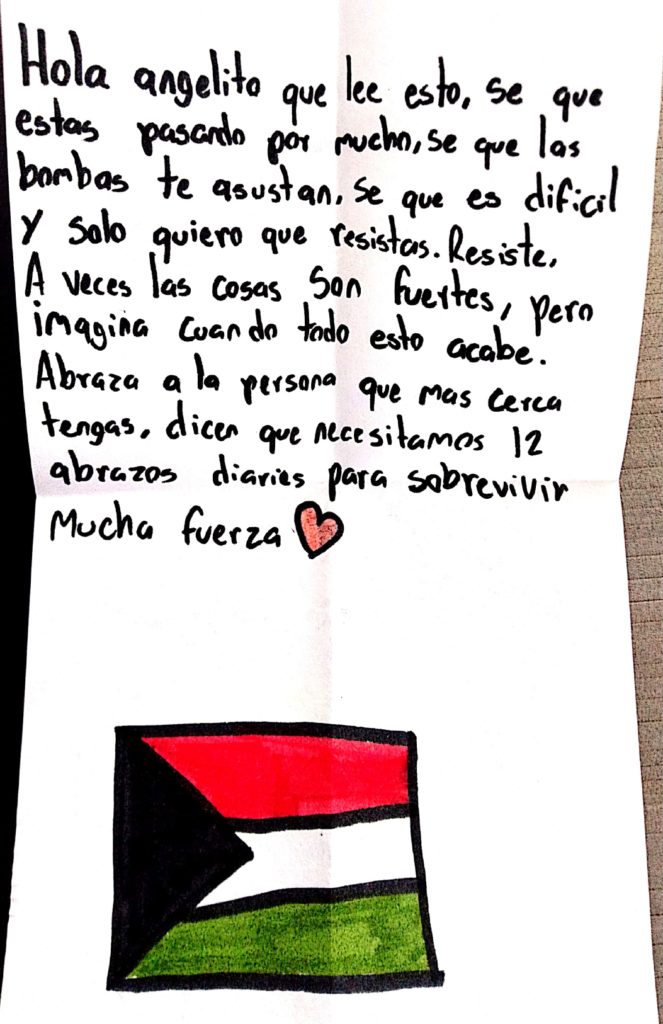 Hola angelito que lee esto, se que
estas pasando por mucho, se que las
bombas te asustan, se que es dificil
Y solo quiero que resistas. Resiste,
A veces las cosas son fuertes, pero
imagina cuando todo esto acabe.
Abraza a la persona que mas cerca
tengas, dicen que necesitamos 12
abrazos diaries para sobrevivir
Mucha fuerza